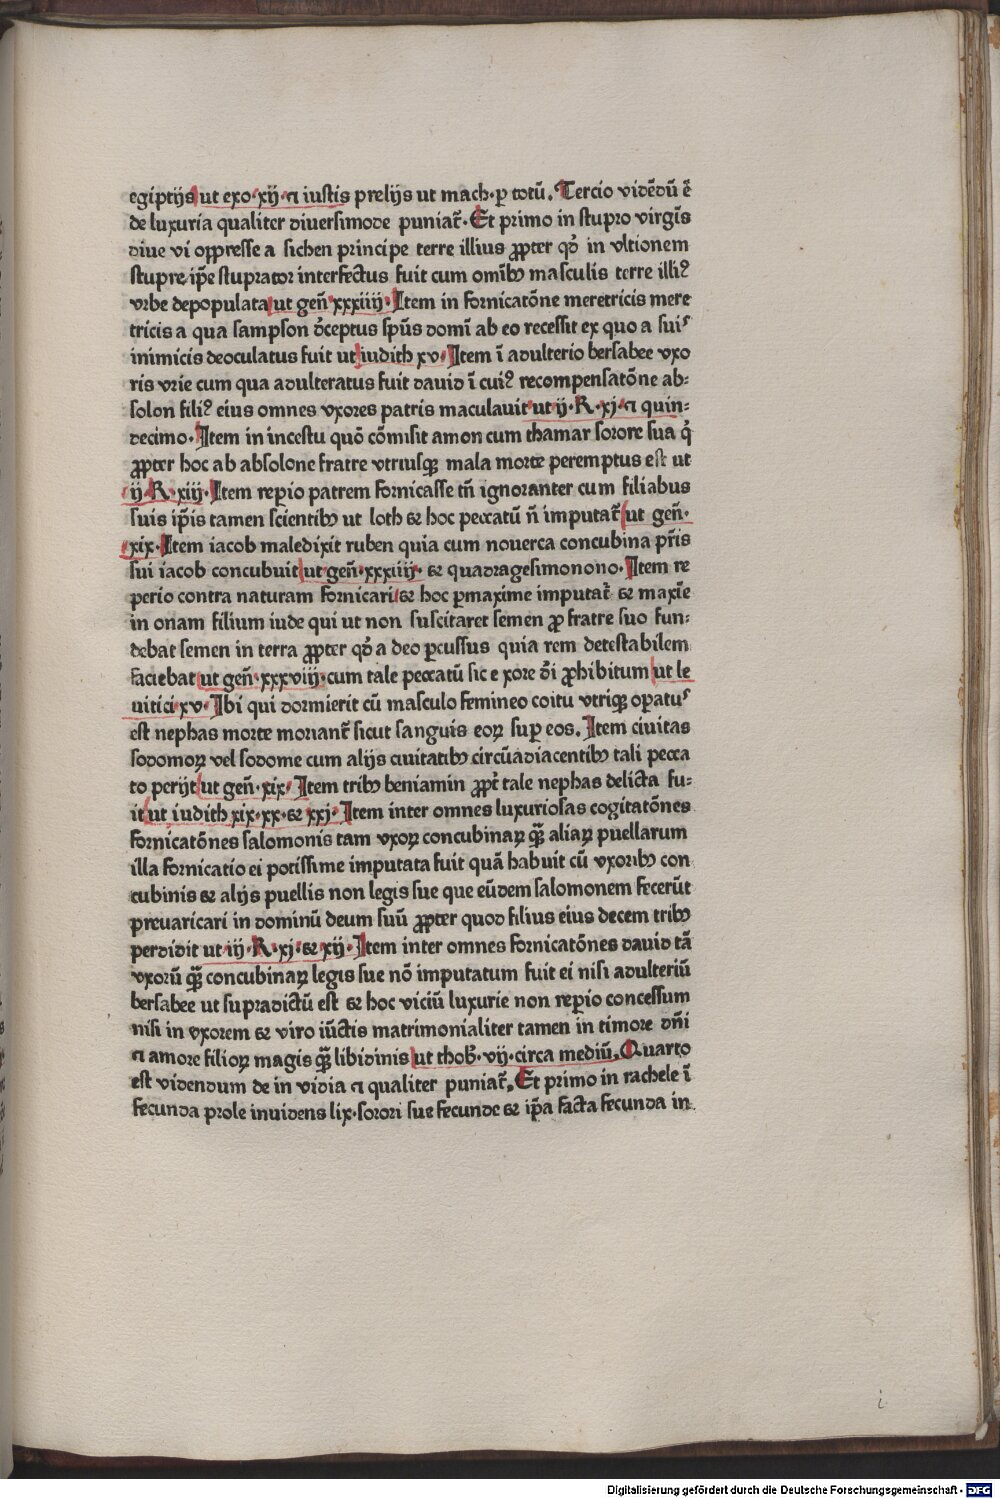 egiptijs ut exo·xij·⁊ iustis prelijs ut mach·ꝑ totū. Tercio vidēdū ē
de luxuria qualiter diuersimode puniat᷑· Et primo in stupro virgīs
diue vi oppresse a sichen principe terre illius ꝓpter qđ in vltionem
stupre ip̄e stuprator interfectus fuit cum omībꝫ masculis terre illiꝰ
vrbe depopulata ut geñ xxxiiij· Item in fornicatōne meretricis mere
tricis a qua sampson d̄ceptus sp̄us domī ab eo recessit ex quo a suis
inimicis deoculatus fuit ut iudith xv· Item ī adulterio bersabee vxo
ris vrie cum qua adulteratus fuit dauid ī cuiꝰ recompensatōne ab⸗
solon filiꝰ eius omnes vxores patris maculauit ut ij·R·xj·⁊ quin⸗
decimo· Item in incestu quō cōmisit amon cum thamar sorore sua q̇
ꝓpter hoc ab absolone fratre vtriusqꝫ mala morte peremptus est ut
ij·R·xiij· Item reperio patrem fornicasse tn̄ ignoranter cum filiabus
suis ip̄is tamen scientibꝫ ut loth & hoc peccatū n̄ imputat᷑ ut geñ·
xix· Item iacob maledixit ruben quia cum nouerca concubina pr̄is
sui iacob concubuit ut geñ·xxxiiij· & quadragesimonono· Item re
perio contra naturam fornicari & hoc ꝑmaxime imputat᷑ & maxīe
in onam filium iude qui ut non suscitaret semen ꝓ fratre suo fun⸗
debat semen in terra ꝓpter qđ a deo ꝑcussus quia rem detestabilem
faciebat ut geñ·xxxviij·cum tale peccatū sic e xore d̄i ꝓhibitum ut le
uitici xv· Ibi qui dormierit cū masculo femineo coitu vtriqꝫ opatus
est nephas morte moriant᷑ sicut sanguis eoꝝ sup eos. Item ciuitas
sodomoꝝ vel sodome cum alijs ciuitatibꝫ circūadiacentibꝫ tali pecca
to perijt ut geñ·xix· Item tribꝫ beniamin ꝓpt᷑ tale nephas delicta fu⸗
it ut iudith xix·xx·& xxj· Item inter omnes luxuriosas cogitatōnes
fornicatōnes salomonis tam vxoꝝ concubinaꝝ qꝫ̄ aliaꝝ puellarum
illa fornicatio ei potissime imputata fuit quā habuit cū vxoribꝫ con
cubinis & alijs puellis non legis sue que eūdem salomonem fecerūt
preuaricari in dominū deum suū ꝓpter quod filius eius decem tribꝫ
perdidit ut iij·R·xj·& xij· Item inter omnes fornicatōnes dauid tā
vxorū qꝫ̄ concubinaꝝ legis sue nō imputatum fuit ei nisi adulteriū
bersabee ut supradictū est & hoc viciū luxurie non reperio concessum
nisi in vxorem & viro iūctis matrimonialiter tamen in timore dn̄i
⁊ amore filioꝝ magis qꝫ̄ libidinis ut thob·vij·circa mediū. Quarto
est videndum de in vidia ⁊ qualiter puniat᷑. Et primo in rachele ī
fecunda prole inuidens lix·sorori sue fecunde & ip̄a facta fecunda in
i
Digitalisierung gefördert durch die Deutsche Forschungsgemeinschaft - DFG